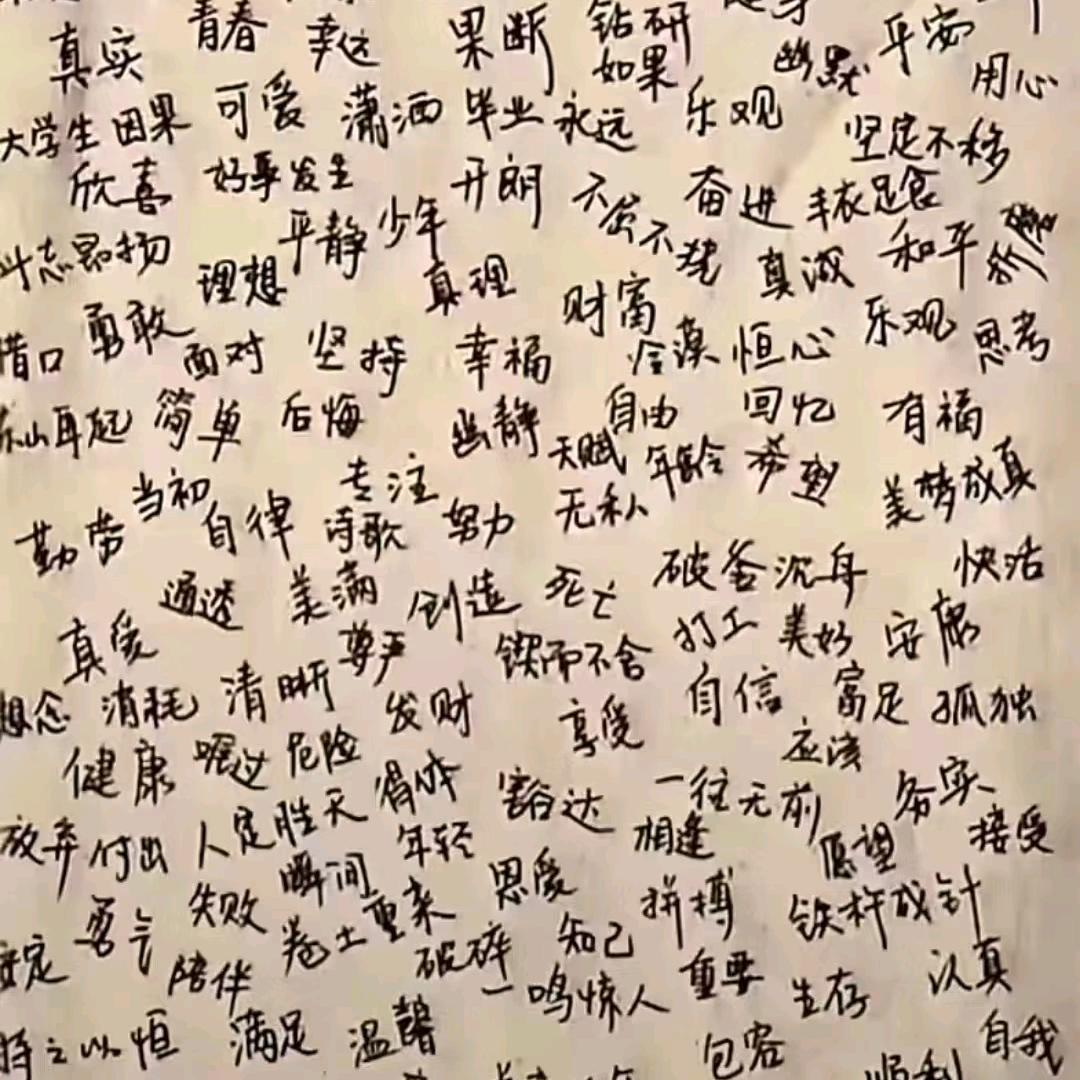 真实 青春 幸运 果断 钻研 平安
如果 幽默 用心
大学生 因果 可爱 潇洒 毕业 永远 乐观 坚定不移
欣喜 好事发生 开朗 不屈不挠 奋进 丰衣足食
斗志昂扬 平静 少年 真诚 和平
理想 真理 财富
借口 勇敢 面对 坚持 幸福 冷漠 恒心 乐观 思考
东山再起 简单 后悔 幽静 自由 回忆 有福
当初 专注 天赋 年龄 希望 美梦成真
勤劳 自律 诗歌 努力 无私
通透 美满 创造 死亡 破釜沉舟 快活
真爱 尊严 锲而不舍 打工 美好 安康
想念 消耗 清晰 发财 享受 自信 富足 孤独
健康 危险 得体 豁达 一往无前 应该 务实
放弃 付出 人定胜天 年轻 相逢 愿望 接受
勇气 失败 瞬间 恩爱 拼搏 铁杵成针
安定 陪伴 卷土重来 破碎 知己 重要 生存 认真
持之以恒 满足 温馨 一鸣惊人 包容 顺利 自我